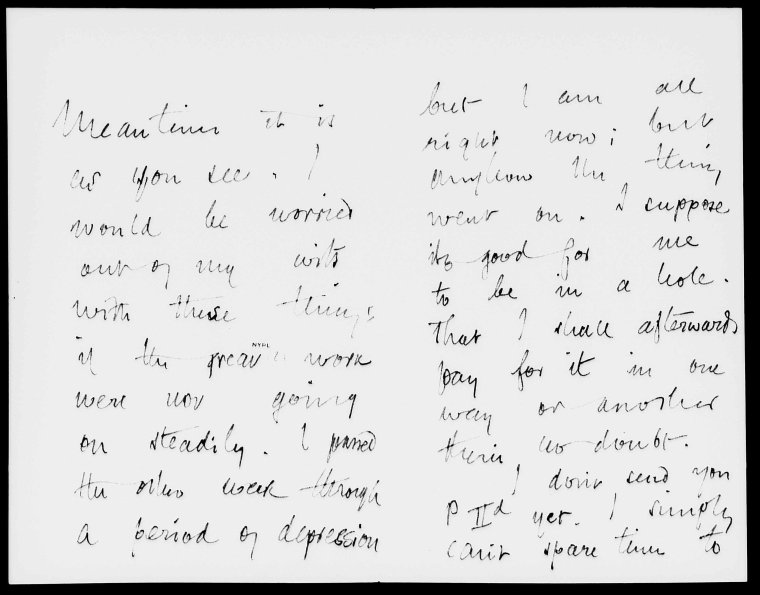 Meantime it is
as you see. I
would be worried
out of my wits
with these things
if the great work
NYPL
were not going
on steadily. I passed
the other week through
a period of depression
but I am all
right now; but
anyhow the thing
went on. I suppose
its good for me
to be in a hole.
That I shall afterwards
pay for it in one
way or another
there's no doubt.
I don't send you
P IId yet. I simply
can't spare time to